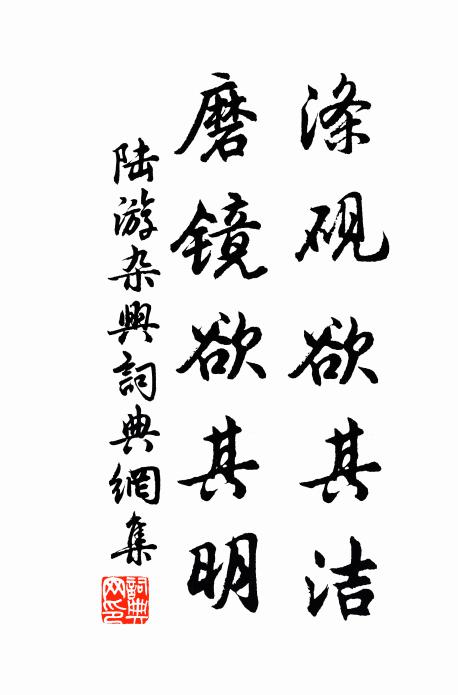 涤砚欲其洁
磨镜欲其明
陆游杂興詞典網集
詞典
网印